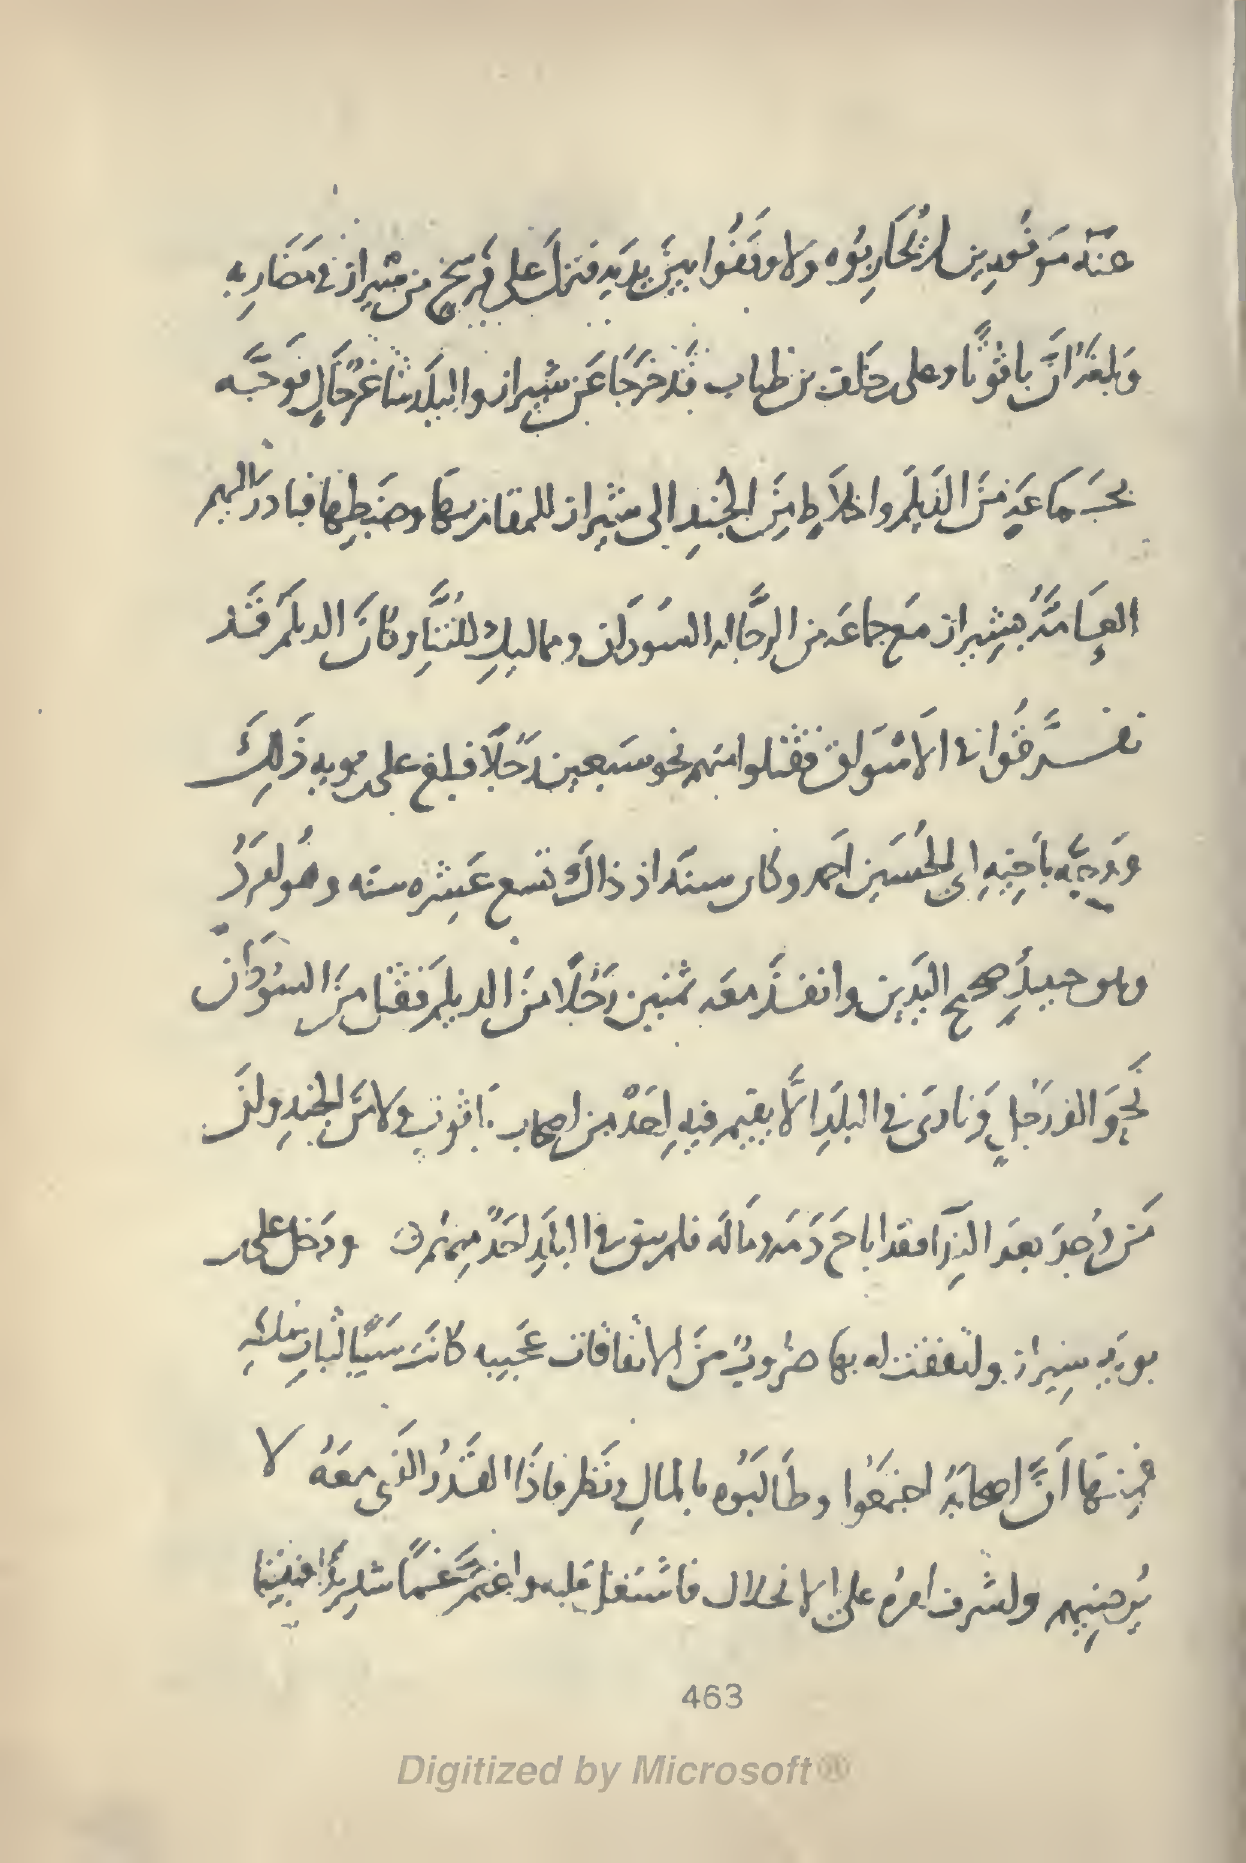 عنه موفورين لم يحاربوه ولا وقفوا بين يديه فنزل على فرسخ من شيراز في مضاربه
وبلغه ان ياقوتا وعلى بن خلف بن طياب قد خرجا عن شيراز والبلد شاغر خال فوجه
بجماعه من الديلم واخلاط من الجند الى شيراز للمقام بها وضبطها فبادر اليهم
العامه بشيراز مع جماعه من الرجاله السودان ومماليك للتناء وكان الديلم قد
تفرقوا في الاسواق فقتلوا منهم نحو سبعين رجلا فبلغ على بن بويه ذلك
ووجه باخيه ابي الحسين احمد وكان سنه اذ ذاك تسع عشره سنه وهو امرد
وهو حينئذ صحيح اليدين وانفذ معه ثمنين رجلا من الديلم فقتل من السودان
نحو الف رجل ونادى في البلد الا يقيم فيه احد من اصحاب ياقوت ولا من الجند وان
من وجد بعد الندا فقد اباح دمه وماله فلم يبق في البلد احد منهم ودخل على بن
بويه شيراز واتفقت له بها ضروب من الاتفاقات عجيبه كانت سببا لثبات ملكه
فمنها ان اصحابه اجتمعوا وطالبوه بالمال ونظر فاذا القدر الذي معه لا
يرضيهم واشرف امره على الانحلال فاشتغل قلبه واغتم غما شديدا فبينا
463
Digitized by Microsoft®